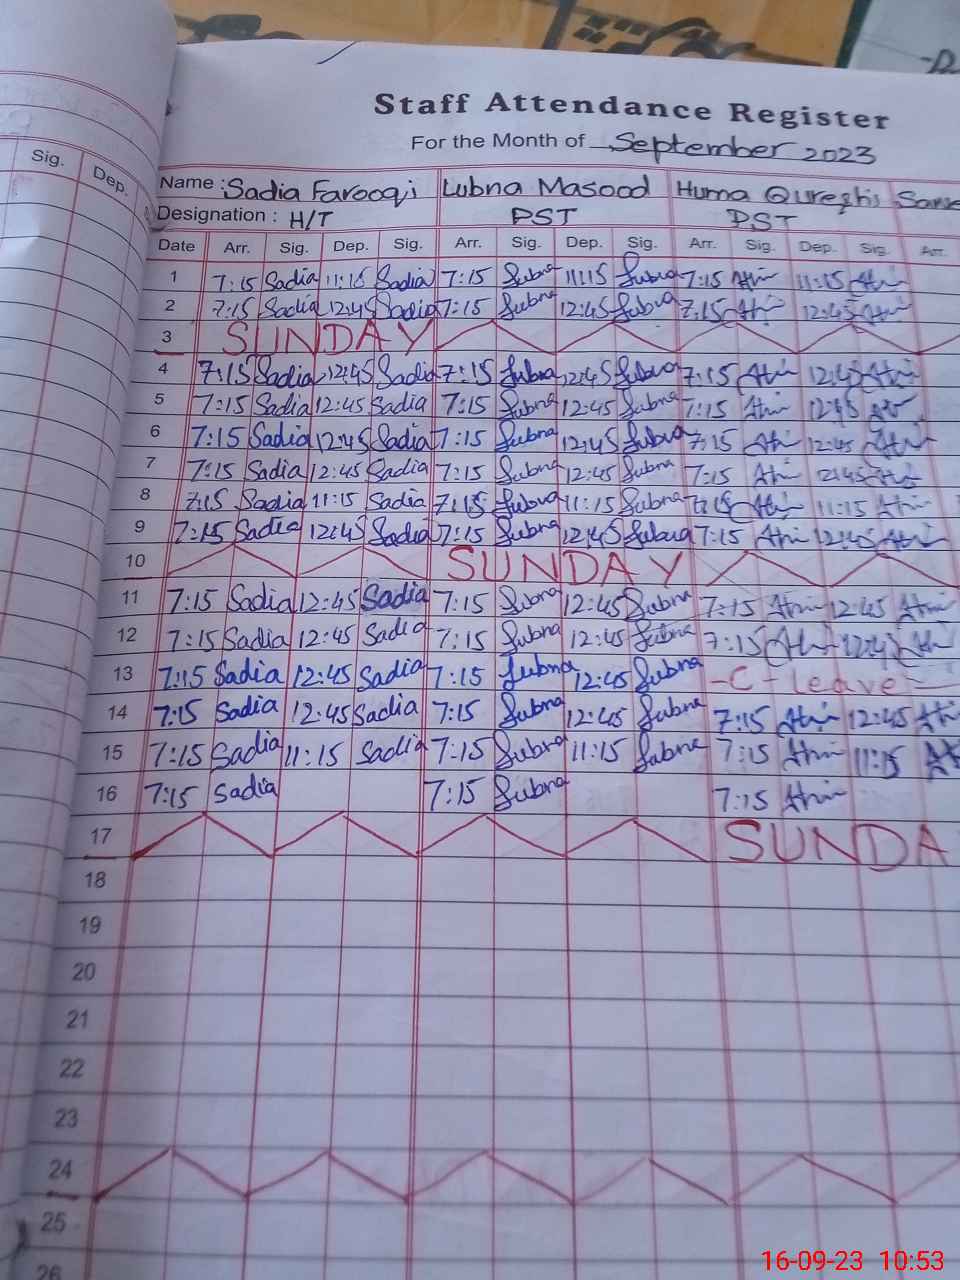 Sig.
Dep.
Staff Attendance Register
For the Month of September 2023
Name : Sadia Farooqi Lubna Masood Huma Qureshi
Designation : H/T PST PST
Date Arr. Sig. Dep. Sig. Arr. Sig. Dep. Sig. Arr. Sig. Dep. Sig. Arr.
1 7:15 Sadia 11:15 Sadia 7:15 Lubna 11:15 Lubna 7:15 11:15
2 7:15 Sadia 12:45 Sadia 7:15 Lubna 12:45 Lubna 7:15 12:45
3 SUNDAY
4 7:15 Sadia 12:45 Sadia 7:15 Lubna 12:45 Lubna 7:15 12:45
5 7:15 Sadia 12:45 Sadia 7:15 Lubna 12:45 Lubna 7:15 12:45
6 7:15 Sadia 12:45 Sadia 7:15 Lubna 12:45 Lubna 7:15 12:45
7 7:15 Sadia 12:45 Sadia 7:15 Lubna 12:45 Lubna 7:15 12:45
8 7:15 Sadia 11:15 Sadia 7:15 Lubna 11:15 Lubna 7:15 11:15
9 7:15 Sadia 12:45 Sadia 7:15 Lubna 12:45 Lubna 7:15 12:45
10 SUNDAY
11 7:15 Sadia 12:45 Sadia 7:15 Lubna 12:45 Lubna 7:15 12:45
12 7:15 Sadia 12:45 Sadia 7:15 Lubna 12:45 Lubna 7:15 12:45
13 7:15 Sadia 12:45 Sadia 7:15 Lubna 12:45 Lubna -C-leave-
14 7:15 Sadia 12:45 Sadia 7:15 Lubna 12:45 Lubna 7:15 12:45
15 7:15 Sadia 11:15 Sadia 7:15 Lubna 11:15 Lubna 7:15 11:15
16 7:15 Sadia 7:15 Lubna 7:15
17 SUNDA
18
19
20
21
22
23
24
25
26
16-09-23 10:53